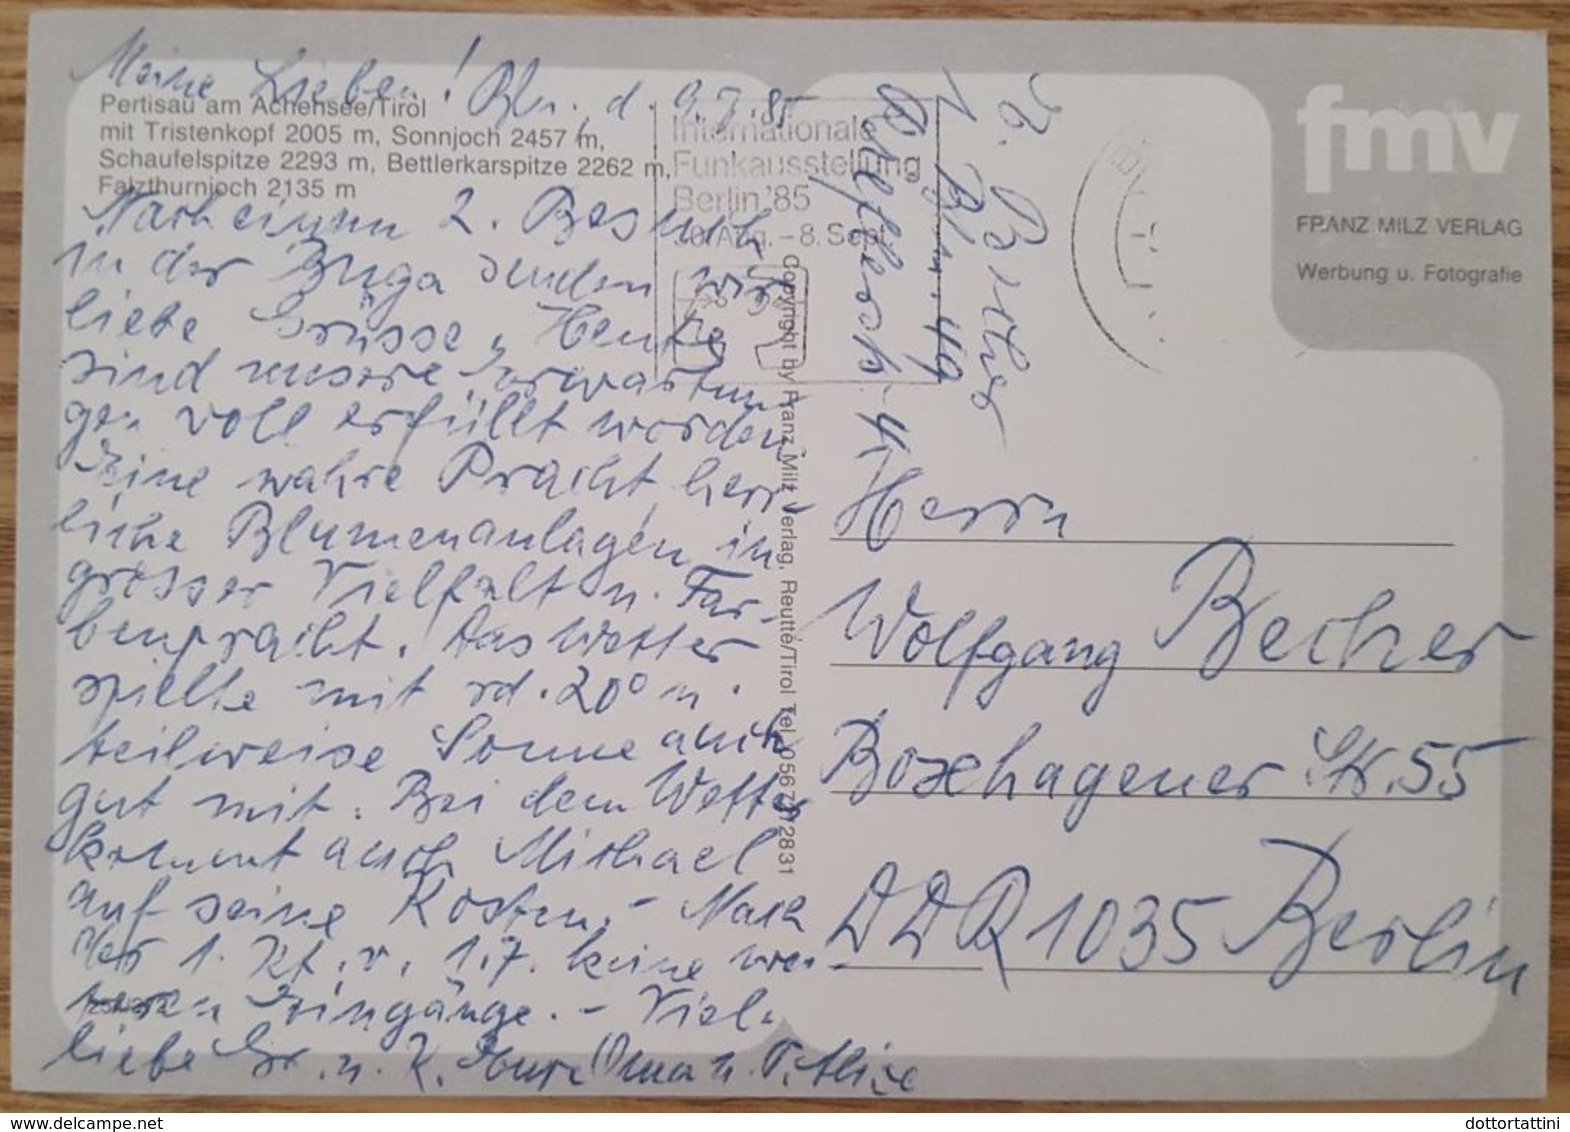 Meine Lieben! Bln., d. 9.7.85
Pertisau am Achensee/Tirol
mit Tristenkopf 2005 m, Sonnjoch 2457 m,
Schaufelspitze 2293 m, Bettlerkarspitze 2262 m,
Falzthurnjoch 2135 m
Nach einem 2. Besuch
in der Buga senden wir
liebe Grüsse. Heute
sind unsere Erwartun-
gen voll erfüllt worden
Eine wahre Pracht, herr-
liche Blumenanlagen in
grosser Vielfalt u. Far-
benpracht. Das Wetter
spielte mit rd. 20° u.
teilweise Sonne auch
gut mit. Bei dem Wetter
kommt auch Michael
auf seine Kosten. - Nach
der 1. Kt. v. 1.7. keine wei-
teren Eingänge. - Viele
liebe Gr. u. K. Eure Oma u. T. Alice
25/1272
Internationale
Funkausstellung
Berlin '85
30. Aug. - 8. Sept.
Copyright by Franz Milz Verlag, Reutte/Tirol Tel. 05672/2831
1 Bln. 49
fmv
FRANZ MILZ VERLAG
Werbung u. Fotografie
Herrn
Wolfgang Becher
Boxhagener Str. 55
DDR 1035 Berlin
dottortattini